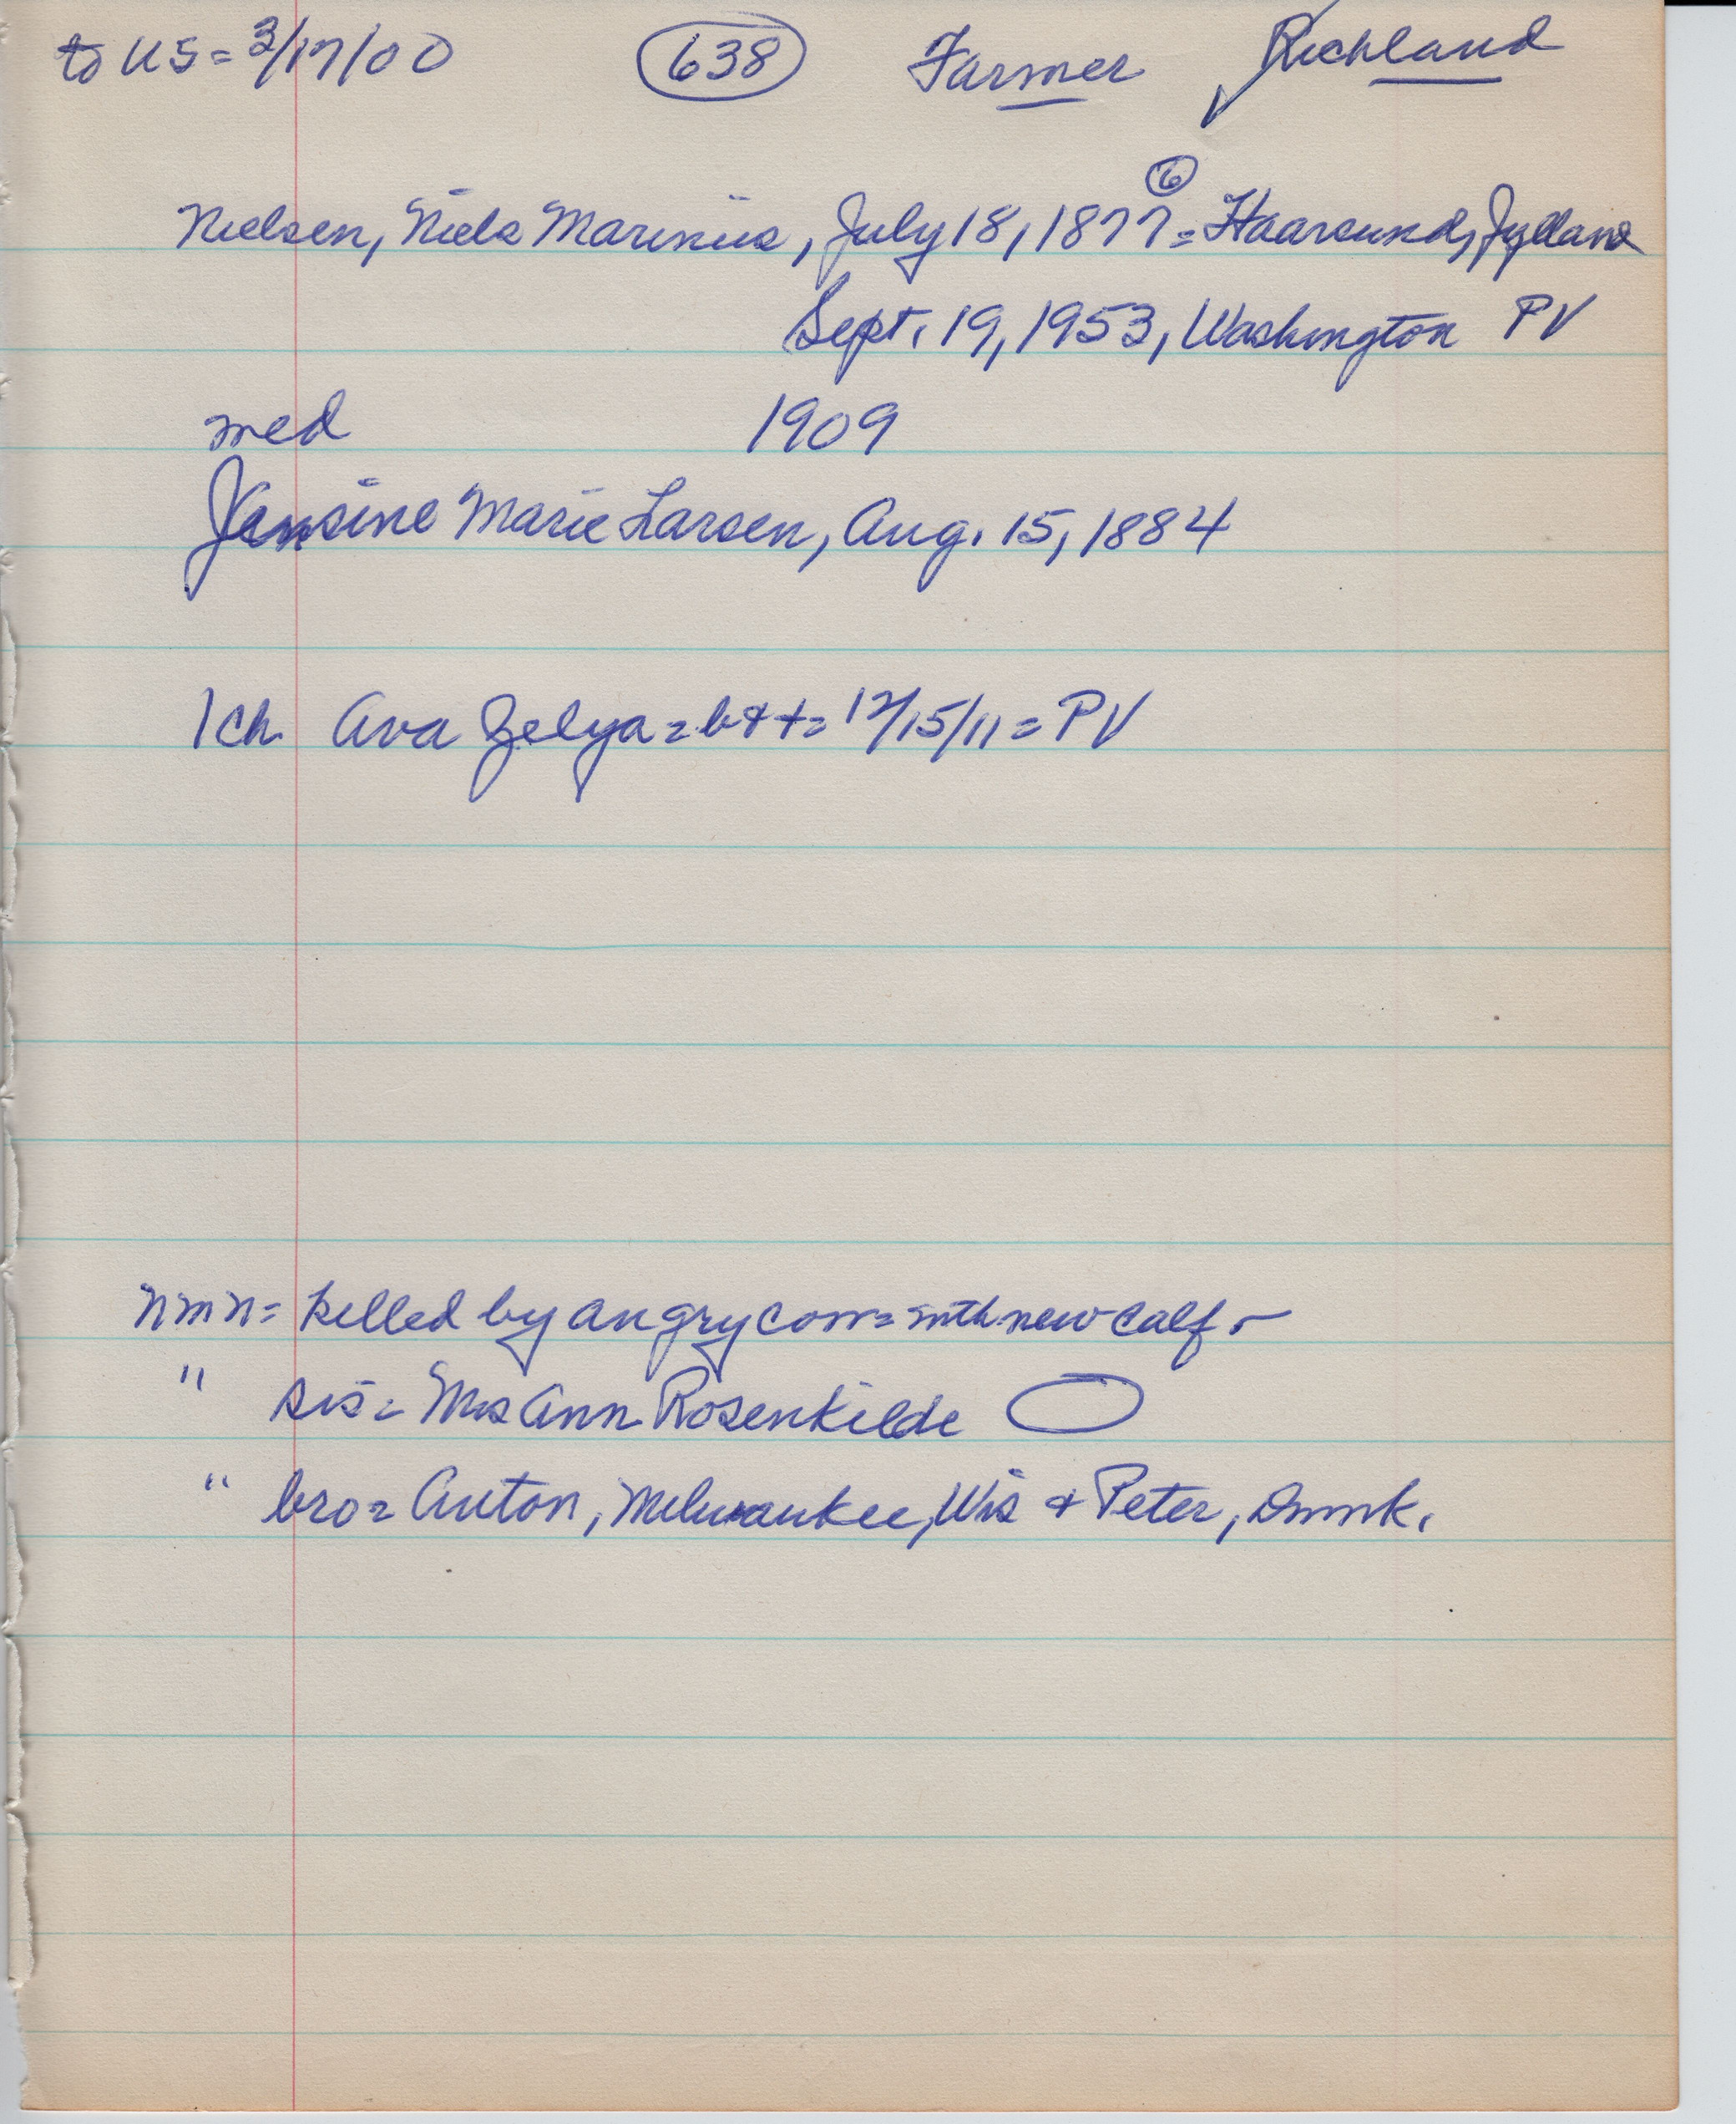 to US = 3/17/00 638 Farmer Richland
6
Nielsen, Niels Marinus, July 18, 1877 = Haarsund, Jylland
Sept. 19, 1953, Washington PV
med 1909
Jensine Marie Larsen, Aug. 15, 1884
1 ch. Ava Zelya = b + + = 12/15/11 = PV
NMN = killed by angry cow = with new calf -
" sis = Mrs Ann Rosenkilde
" bro = Anton, Milwaukee, Wis & Peter, Dnmk.